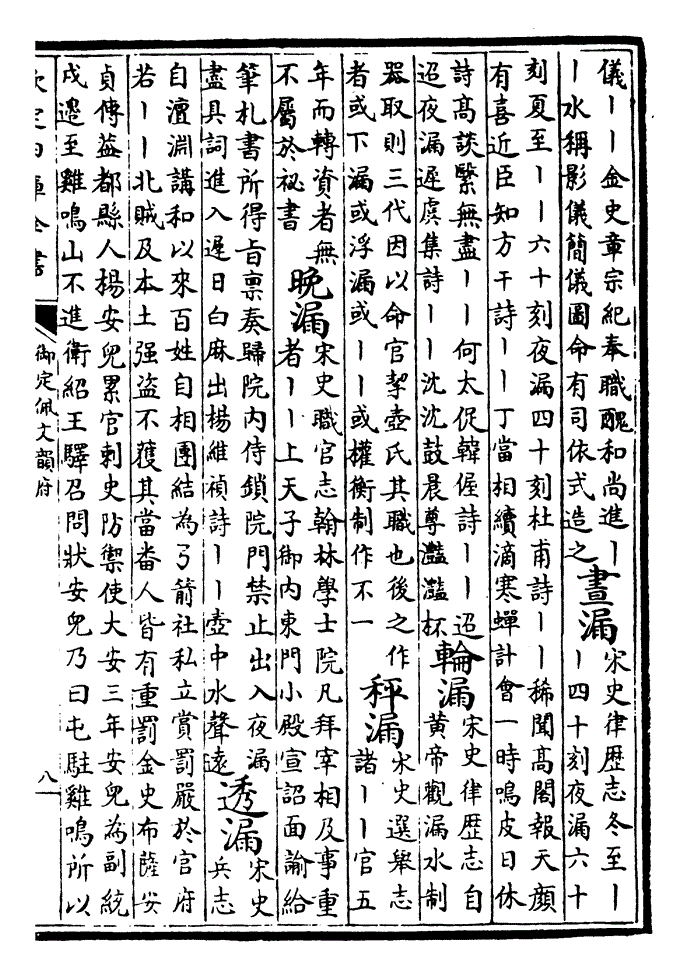 儀丨丨金史章宗紀奉職醜和尚進丨
丨水稱影儀簡儀圖命有司依式造之
晝漏
宋史律歷志冬至丨
丨四十刻夜漏六十
刻夏至丨丨六十刻夜漏四十刻杜甫詩丨丨稀聞高閣報天顔
有喜近臣知方干詩丨丨丁當相續滴寒蟬計會一時鳴皮日休
詩高談繄無盡丨丨何太促韓偓詩丨丨迢
迢夜漏遲虞集詩丨丨沈沈鼓晨尊灩灩杯
輪漏
宋史律歷志自
黄帝觀漏水制
器取則三代因以命官挈壺氏其職也後之作
者或下漏或浮漏或丨丨或權衡制作不一
秤漏
宋史選舉志
諸丨丨官五
年而轉資者無
不屬於祕書
晚漏
宋史職官志翰林學士院凡拜宰相及事重
者丨丨上天子御内東門小殿宣詔面諭給
筆札書所得旨禀奏歸院内侍鎖院門禁止出入夜漏
盡具詞進入遲日白麻出楊維禎詩丨丨壺中水聲遠
透漏
宋史
兵志
自澶淵講和以來百姓自相團結為弓箭社私立賞罰嚴於官府
若丨丨北賊及本土强盗不獲其當番人皆有重罰金史布薩安
貞傳益都縣人楊安兒累官刺史防禦使大安三年安兒為副統
戍邊至雞鳴山不進衛紹王驛召問狀安兒乃曰屯駐雞鳴所以
欽定四庫全書
御定佩文韻府
八